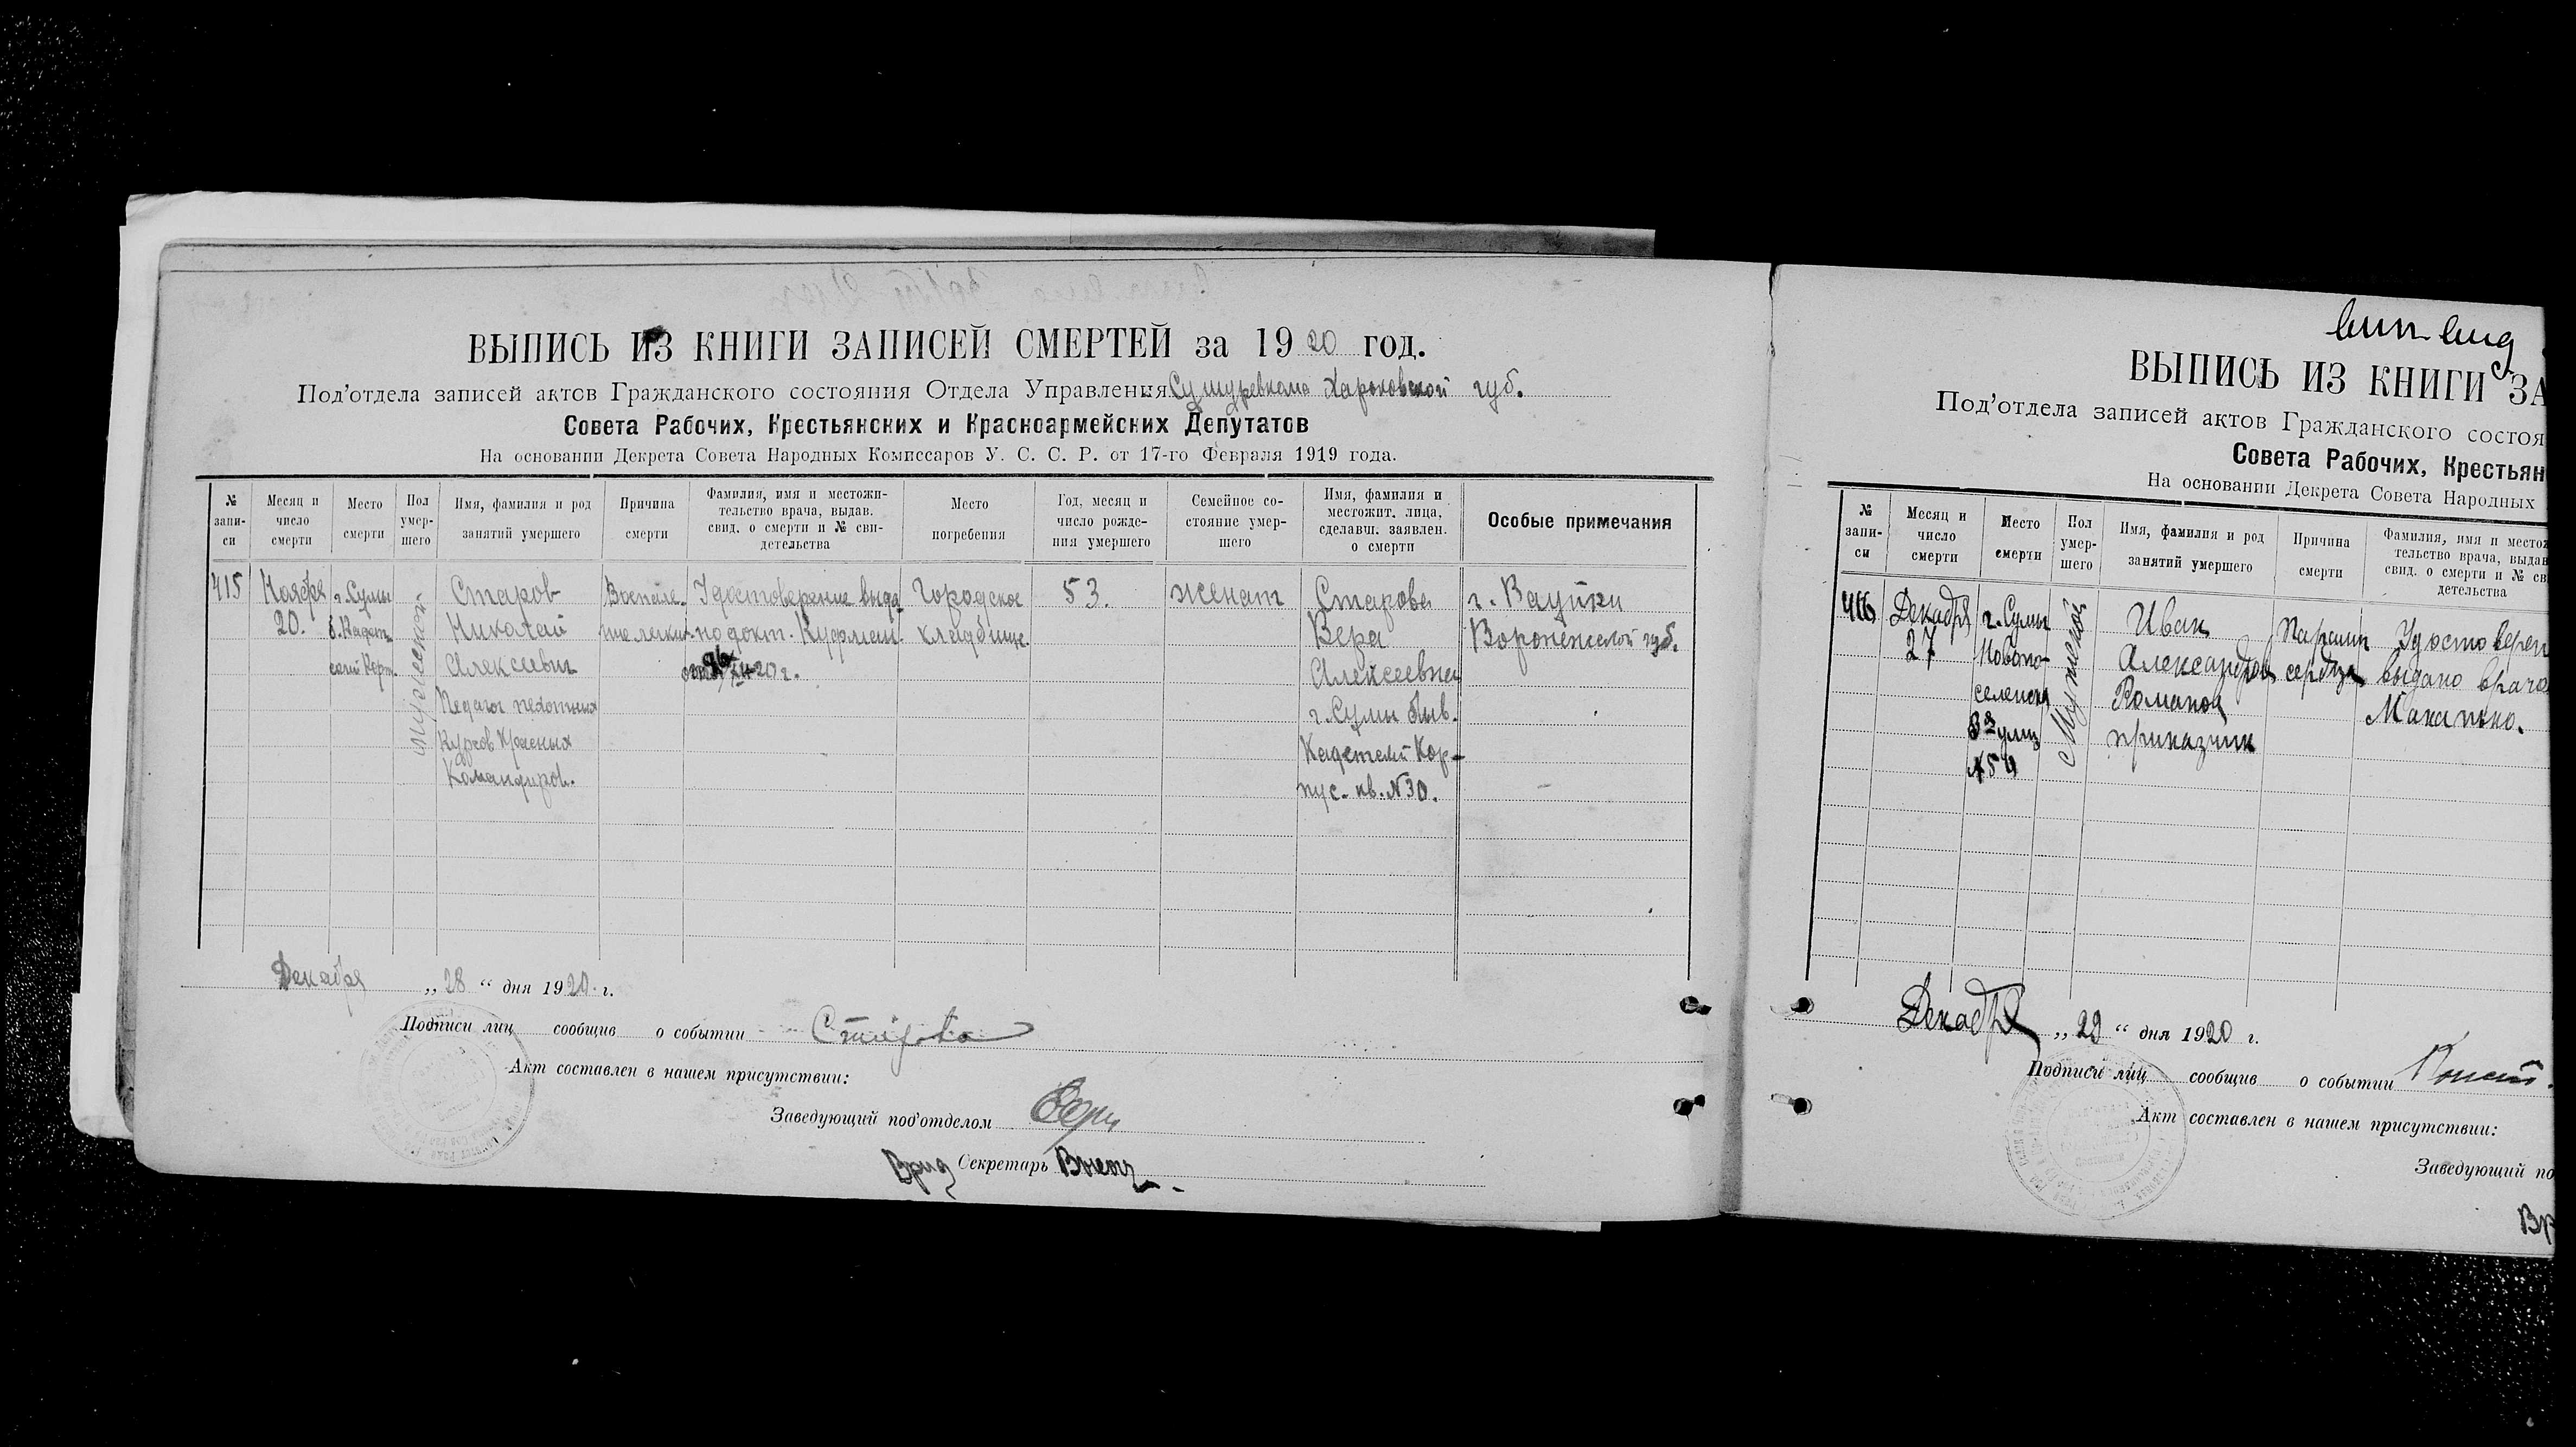 ВЫПИСЬ ИЗ КНИГИ ЗАПИСЕЙ СМЕРТЕЙ за 1920 год.
Под’отдела записей актов Гражданского состояния Отдела Управления Сумуревкома Харьковской губ.
Совета Рабочих, Крестьянских и Красноармейских Депутатов
На основании Декрета Совета Народных Комиссаров У. С. С. Р. от 17-го Февраля 1919 года.
№ запи-си
Месяц и число смерти
Место смерти
Пол умер-шего
Имя, фамилия и род занятий умершего
Причина смерти
Фамилия, имя и местожи-тельство врача, выдав. свид. о смерти и № сви-детельства
Место погребения
Год, месяц и число рожде-ния умершего
Семейное со-стояние умер-шего
Имя, фамилия и местожит. лица, сделавш. заявлен. о смерти
Особые примечания
415
Ноября
20.
г. Сумы
б. Кадет-
ский Корп.
мужеской
Старов
Николай
Алексеевич
Педагог пехотных
Курсов Красных
Командиров.
Воспале-
ние легких
Удостоверение выда-
но докт. Куфман
20 г.
Городское
кладбище
53.
женат
Старова
Вера
Алексеевна
г. Сумы быв.
Кадетский Кор-
пус. кв. № 30.
г. Валуйки
Воронежской губ.
Декабря „ 28 “ дня 1920. г.
Подписи лиц сообщив о событии Старова
Акт составлен в нашем присутствии:
Заведующий под’отделом
Врид Секретарь
ВЫПИСЬ ИЗ КНИГИ ЗА
Под’отдела записей актов Гражданского состоя
Совета Рабочих, Крестьян
На основании Декрета Совета Народных
№ запи-си
Месяц и число смерти
Место смерти
Пол умер-шего
Имя, фамилия и род занятий умершего
Причина смерти
Фамилия, имя и местож
тельство врача, выдав
свид. о смерти и № св
детельства
416
Декабря
27
г. Сумы
Новопо-
селенск
3я улиц
Мужской
Иван
Александров
Романов
приказчик
Парали
сердца
Удостоверен
выдано врачо
Декабря „ 29 “ дня 1920 г.
Подписи лиц сообщив о событии
Акт составлен в нашем присутствии:
Заведующий по
Вр